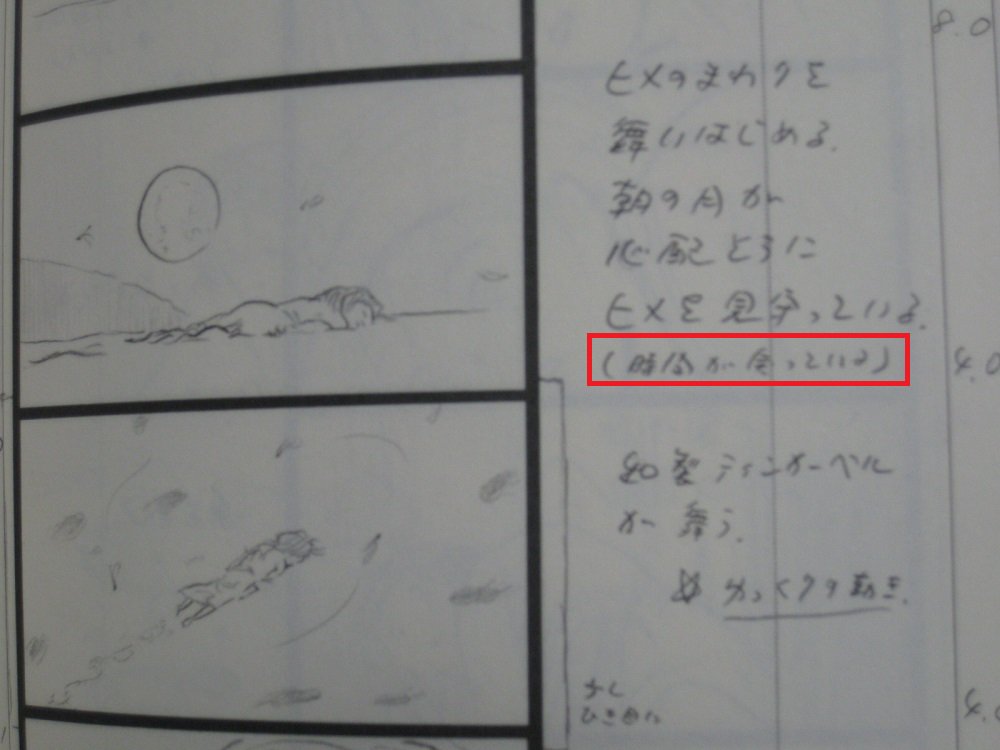 8.0
ヒメのまわりを
舞いはじめる.
朝の月が
心配そうに
ヒメを見守っている.
(時間が戻っている)
4.0
ティンカーベル
が舞う.
ゆっくりの動き.
少し
ひき切れ
4.0